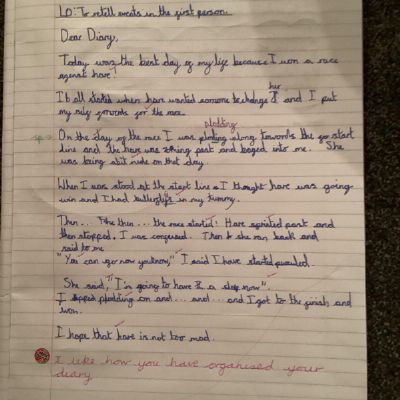 LO: To retell events in the first person.
Dear Diary,
Today was the best day of my life because I won a race
against hare!
It all started when hare wanted someone to challenge her and I put
my name forwards for the race.
plodding
On the day of the race I was ploding along towards the start
line and the hare was zooming past and boged into me. She
was being abit rude on that day.
When I was stood at the start line I thought hare was going
win and I had butterflys in my tummy.
Then... the then... the race started! Hare sprinted past and
then stopped, I was confused. Then she ran back and
said to me
"You can go now yuknow," I said I have started puzzeled.
She said, "I'm going to have a sleep now".
I plodding on and... and... and I got to the finish and
won.
I hope that hare is not too mad.
I like how you have organised your
diary